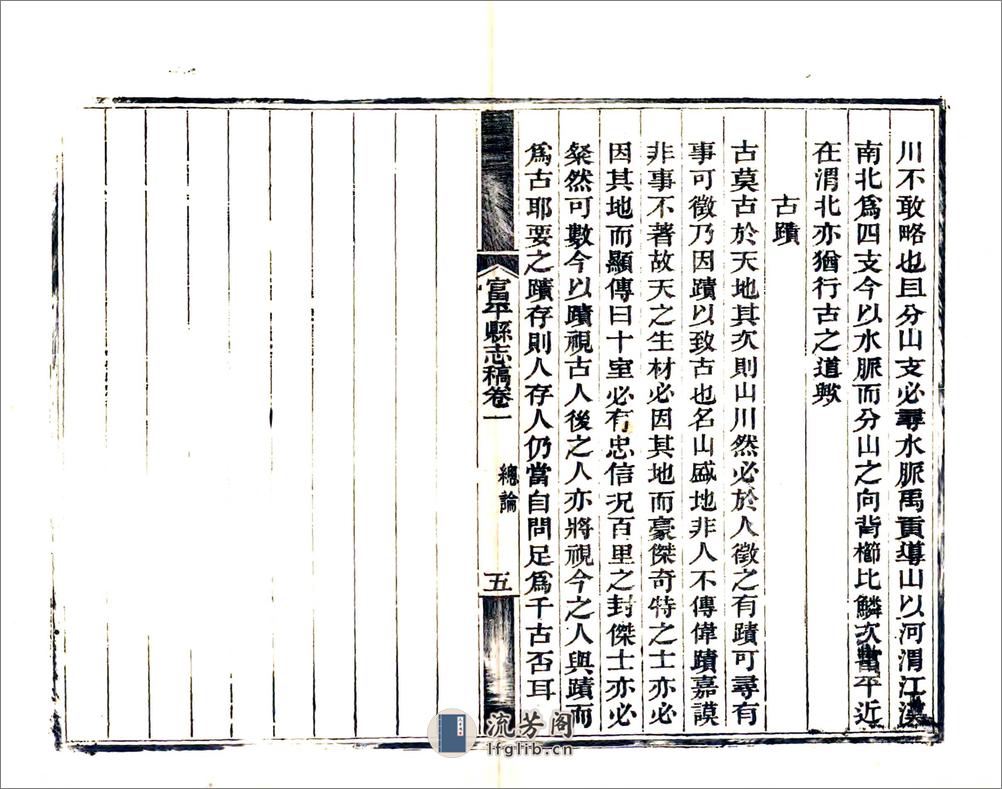 川不敢略也且分山支必尋水脈禹貢導山以河渭江漢
南北爲四支今以水脈而分山之向背櫛比鱗次富平近
在渭北亦猶行古之道歟
古蹟
古莫古於天地其次則山川然必於人徵之有蹟可尋有
事可徵乃因蹟以致古也名山盛地非人不傳偉蹟嘉謨
非事不著故天之生材必因其地而豪傑奇特之士亦必
因其地而顯傳曰十室必有忠信况百里之封傑士亦必
粲然可數今以蹟視古人後之人亦將視今之人與蹟而
爲古耶要之蹟存則人存人仍當自問足爲千古否耳
富平縣志稿卷一
總論
五
流芳阁
lfglib.cn